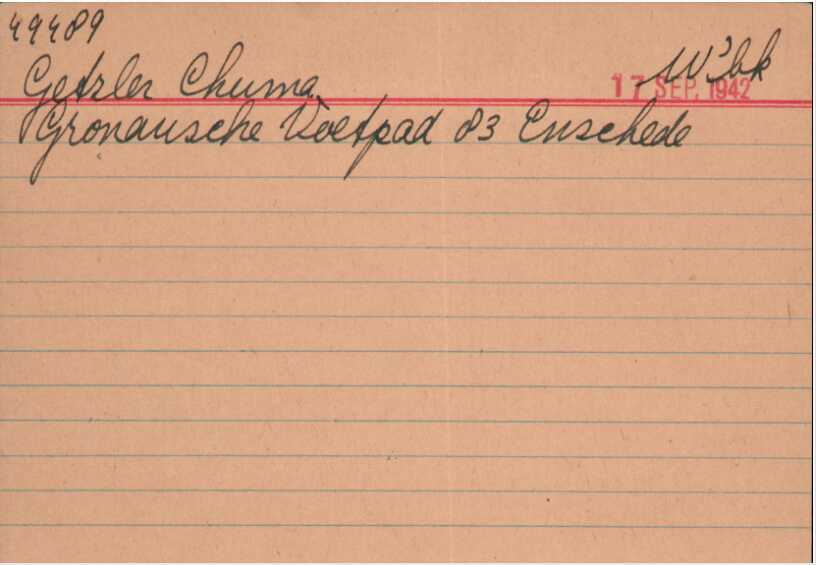 49489
W'bk
Getzler Chuma.
17 SEP. 1942
Gronausche Voetpad 83 Enschede